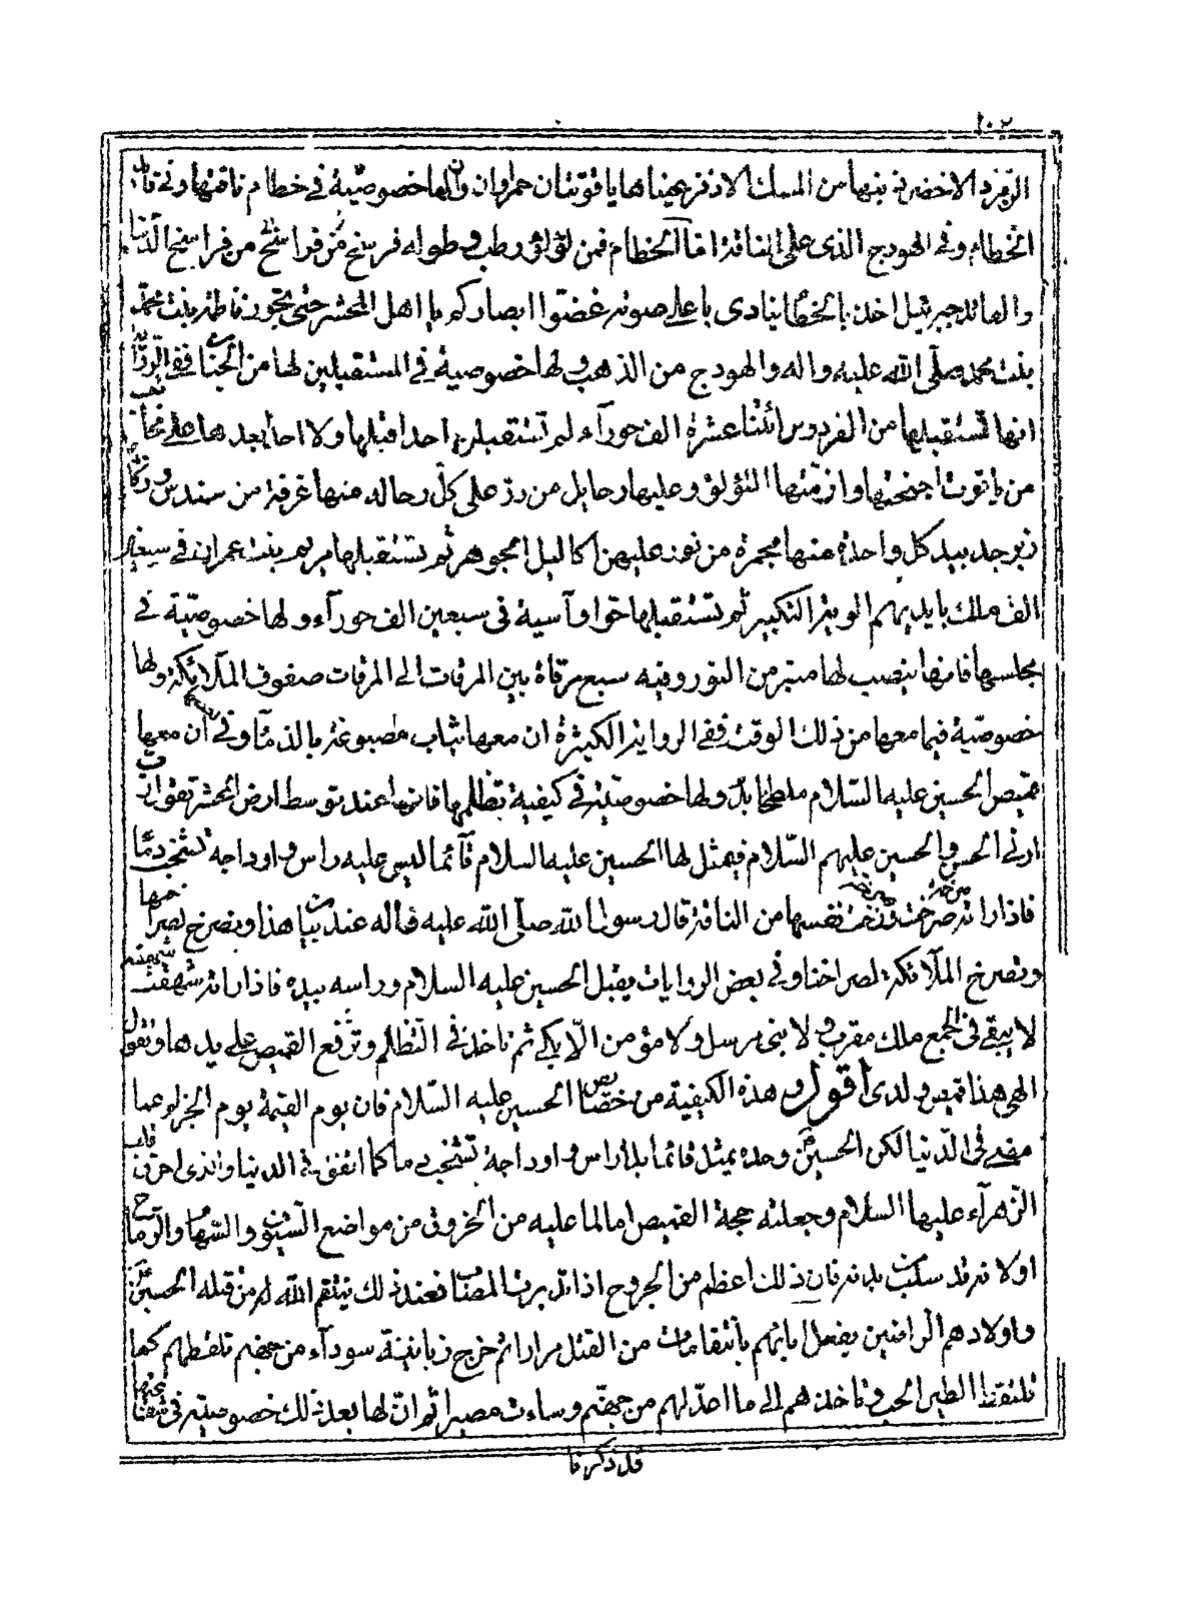 ١٠٢
الزمرد الاخضر ذنبها من المسك الاذفر عيناها ياقوتتان حمراوان ولها خصوصية في خطام ناقتها وفي قائد
الخطام وفي الهودج الذي على الناقة اما الخطام فمن لؤلؤ رطب وطوله فرسخ من فراسخ الدنيا
والقائد جبرئيل اخذ بالخطام ينادى باعلى صوته غضوا ابصاركم يا اهل المحشر حتى تجوز فاطمة بنت محمد
بنت محمد صلى الله عليه واله والهودج من الذهب ولها خصوصية في المستقبلين لها من الجنان ففي الرواية
انها تستقبلها من الفردوس اثنتا عشرة الف حورآء لم تستقبلن احدا قبلها ولا احدا بعدها على نجائب
من ياقوت اجنحتها وازمتها اللؤلؤ وعليها رحايل من در على كل رحاله منها نمرقة من سندس وركابها
زبرجد بيد كل واحدة منها مجمرة من نور عليهن اكاليل الجوهر ثم تستقبلها مريم بنت عمران في سبعين
الف ملك بايديهم الوية التكبير ثم تستقبلها حوا وآسية في سبعين الف حورآء ولها خصوصية في
مجلسها فانها ينصب لها منبر من النور وفيه سبع مرقاة بين المرقات الى المرقات صفوف الملآئكة ولها
خصوصية فيما معها من ذلك الوقت ففي الرواية الكثيرة ان معها ثياب مصبوغة بالدمآء وفي ان معها
قميص الحسين عليه السلام ملطخا بدم ولها خصوصية في كيفية تظلمها فانها عند توسط ارض الحشر تقول يارب
ارني الحسن والحسين عليهم السلام فيمثل لها الحسين عليه السلام قآئما ليس عليه راس واوداجه تشخب دما
فاذا راته صرخت صرخة وزخت نفسها من الناقة قال رسول الله صلى الله عليه فاله عند بيا هذا ويصرخ لصراخها
وتصرخ الملآئكة لصراخنا وفي بعض الروايات يقبل الحسين عليه السلام وراسه بيده فاذا راته شهقت شهقة
لا يبقى في الجمع ملك مقرب ولا نبي مرسل ولا مؤمن الا بكى ثم تاخذ في التظلم وترفع القميص على يدها وتقول
الهي هذا قميص ولدي اقول وهذه الكيفية من خصايص الحسين عليه السلام فان يوم القيمة يوم الجزاء عما
في الدنيا لكن الحسين وحده يمثل قائما بلا راس واوداجه تشخب دما كما اتفق في الدنيا والذي احرق قلب
الزهرآء عليها السلام وجعلته حجة القميص اما لما عليه من الخروق من مواضع السيوف والسهام والرماح
اولانه قد سكت بدنه فان ذلك اعظم من الجروح اذا تدبرت المصائب فعند ذلك ينتقم الله له من قتله الحسين
واولادهم الراضين بفعل ابائهم بانتقامات من القتل مرارا ثم خرج زبانية سودآء من جهنم تلقطهم كما
تلتقط الطير الحب وتاخذهم الى ما اعد لهم من جهنم وساءت مصيرا ثم ان لها بعد ذلك خصوصية في شفاعتها
قد ذكرنا